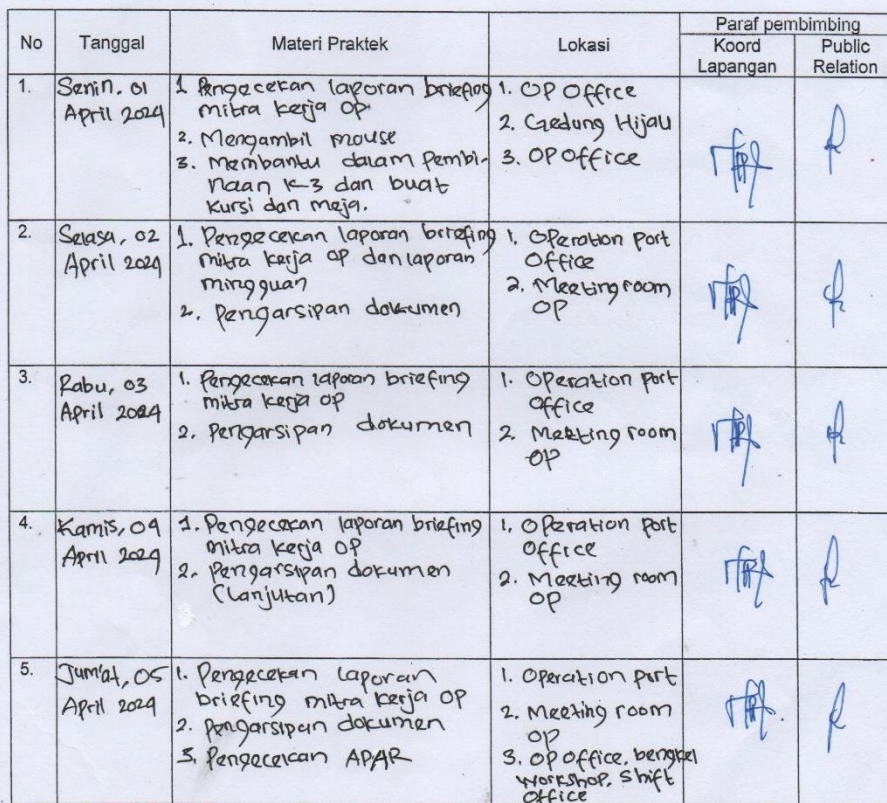 No Tanggal Materi Praktek Lokasi Paraf pembimbing
Koord Lapangan Public Relation
1. Senin, 01 April 2024
1. Pengecekan laporan briefing
mitra kerja OP
2. Mengambil mouse
3. Membantu dalam pembi-
naan K-3 dan buat
kursi dan meja.
1. OP Office
2. Gedung Hijau
3. OP Office
2. Selasa, 02
April 2024
1. Pengecekan laporan briefing
mitra kerja OP dan laporan
mingguan
2. Pengarsipan dokumen
1. Operation port
Office
2. Meeting room
OP
3. Rabu, 03
April 2024
1. Pengecekan laporan briefing
mitra kerja OP
2. Pengarsipan dokumen
1. Operation port
office
2. Meeting room
OP
4. Kamis, 04
April 2024
1. Pengecekan laporan briefing
mitra kerja OP
2. Pengarsipan dokumen
(Lanjutan)
1. Operation port
Office
2. Meeting room
OP
5. Jum'at, 05
April 2024
1. Pengecekan Laporan
briefing mitra kerja OP
2. Pengarsipan dokumen
3. Pengecekan APAR
1. Operation port
2. Meeting room
OP
3. OP Office, bengkel
workshop, Shift
Office